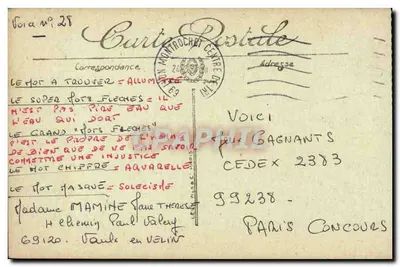 Vora n° 28
Carte Postale
Correspondance
Adresse
69 LYON MONTROCHET CENTRE DE TRI
LE MOT A TROUVER = ALLUMETTE
LE SUPER MOTS FLECHES = IL
N'EST PAS PIRE EAU QUE
L'EAU QUI DORT
LE GRAND "MOTS FLECHES"
C'EST LE PROPRE DE L'HOMME
DE BIEN QUE DE NE PAS SAVOIR
COMMETTRE UNE INJUSTICE
LE MOT CHIFFRE = AQUARELLE
LE MOT MASQUE = SOLECISME
Madame MAMINE Jane THERESE
4 Chemin Paul Valery
69120. Vaulx en VELIN
VOICI
Jeux GAGNANTS
CEDEX 2383
99238 -
PARIS CONCOURS